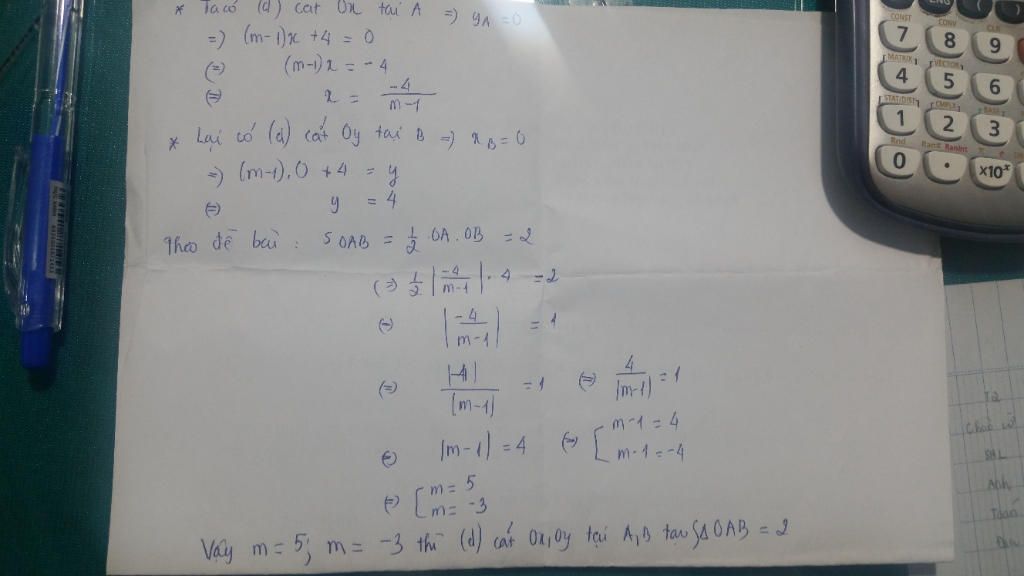 * Ta có (d) cắt Ox tại A => yA = 0
=> (m-1)x + 4 = 0
(=) (m-1)x = -4
(=) x = -4/(m-1)
* Lại có (d) cắt Oy tại B => xB = 0
=> (m-1).0 + 4 = y
(=) y = 4
Theo đề bài : SOAB = 1/2 .OA.OB = 2
(=) 1/2 |-4/(m-1)| . 4 = 2
(=) |-4/(m-1)| = 1
(=) |-4|/|m-1| = 1 (=) 4/|m-1| = 1
(=) |m-1| = 4 (=) [ m-1 = 4
m-1 = -4
(=) [ m = 5
m = -3
Vậy m = 5; m = -3 thì (d) cắt Ox, Oy tại A, B tạo SΔOAB = 2
CONST
CONV
7 8 9
MATRIX VECTOR
4 5 6
STAT/DIST CMPLX BASE
1 2 3
Rnd Ran# RanInt
0 . ×10x
T2
Anh
Toán